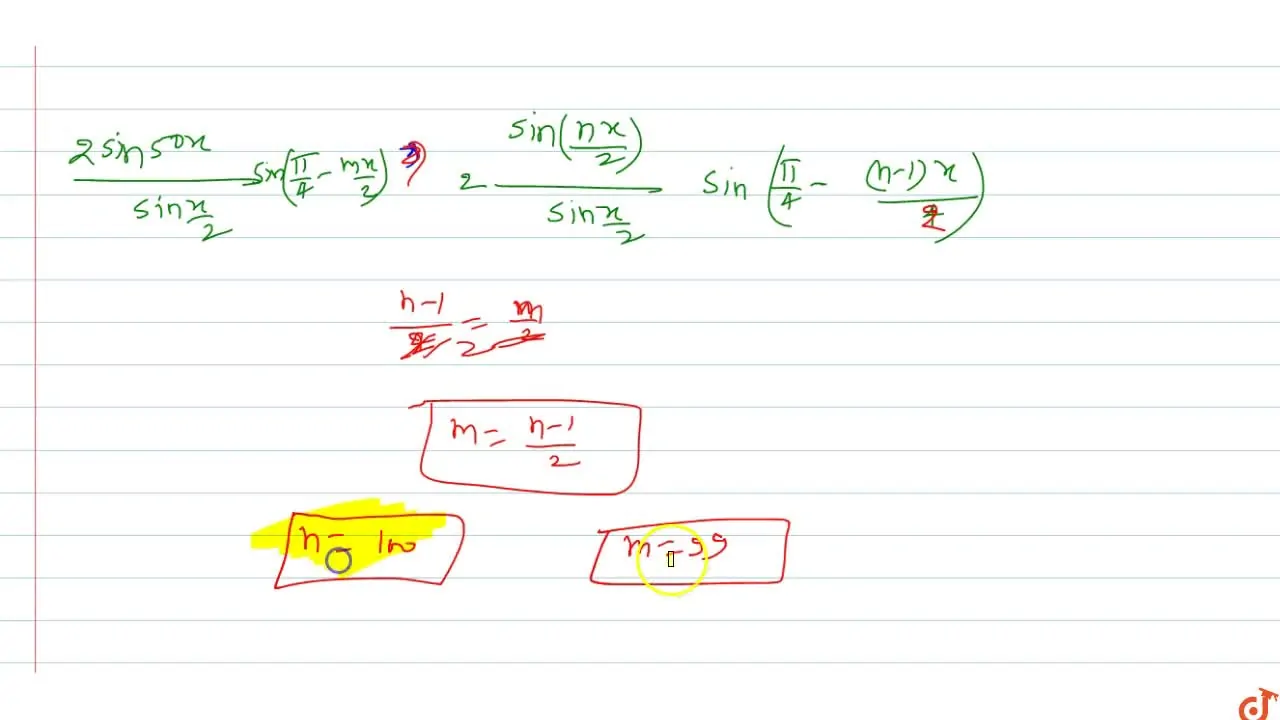 2 sin 50x / sin x/2 sin(π/4 - mx/2) 2 sin(nx/2) / sin x/2 sin(π/4 - (n-1)x/2)
n-1/2 = m/2
m = n-1/2
n = 100 m = 99